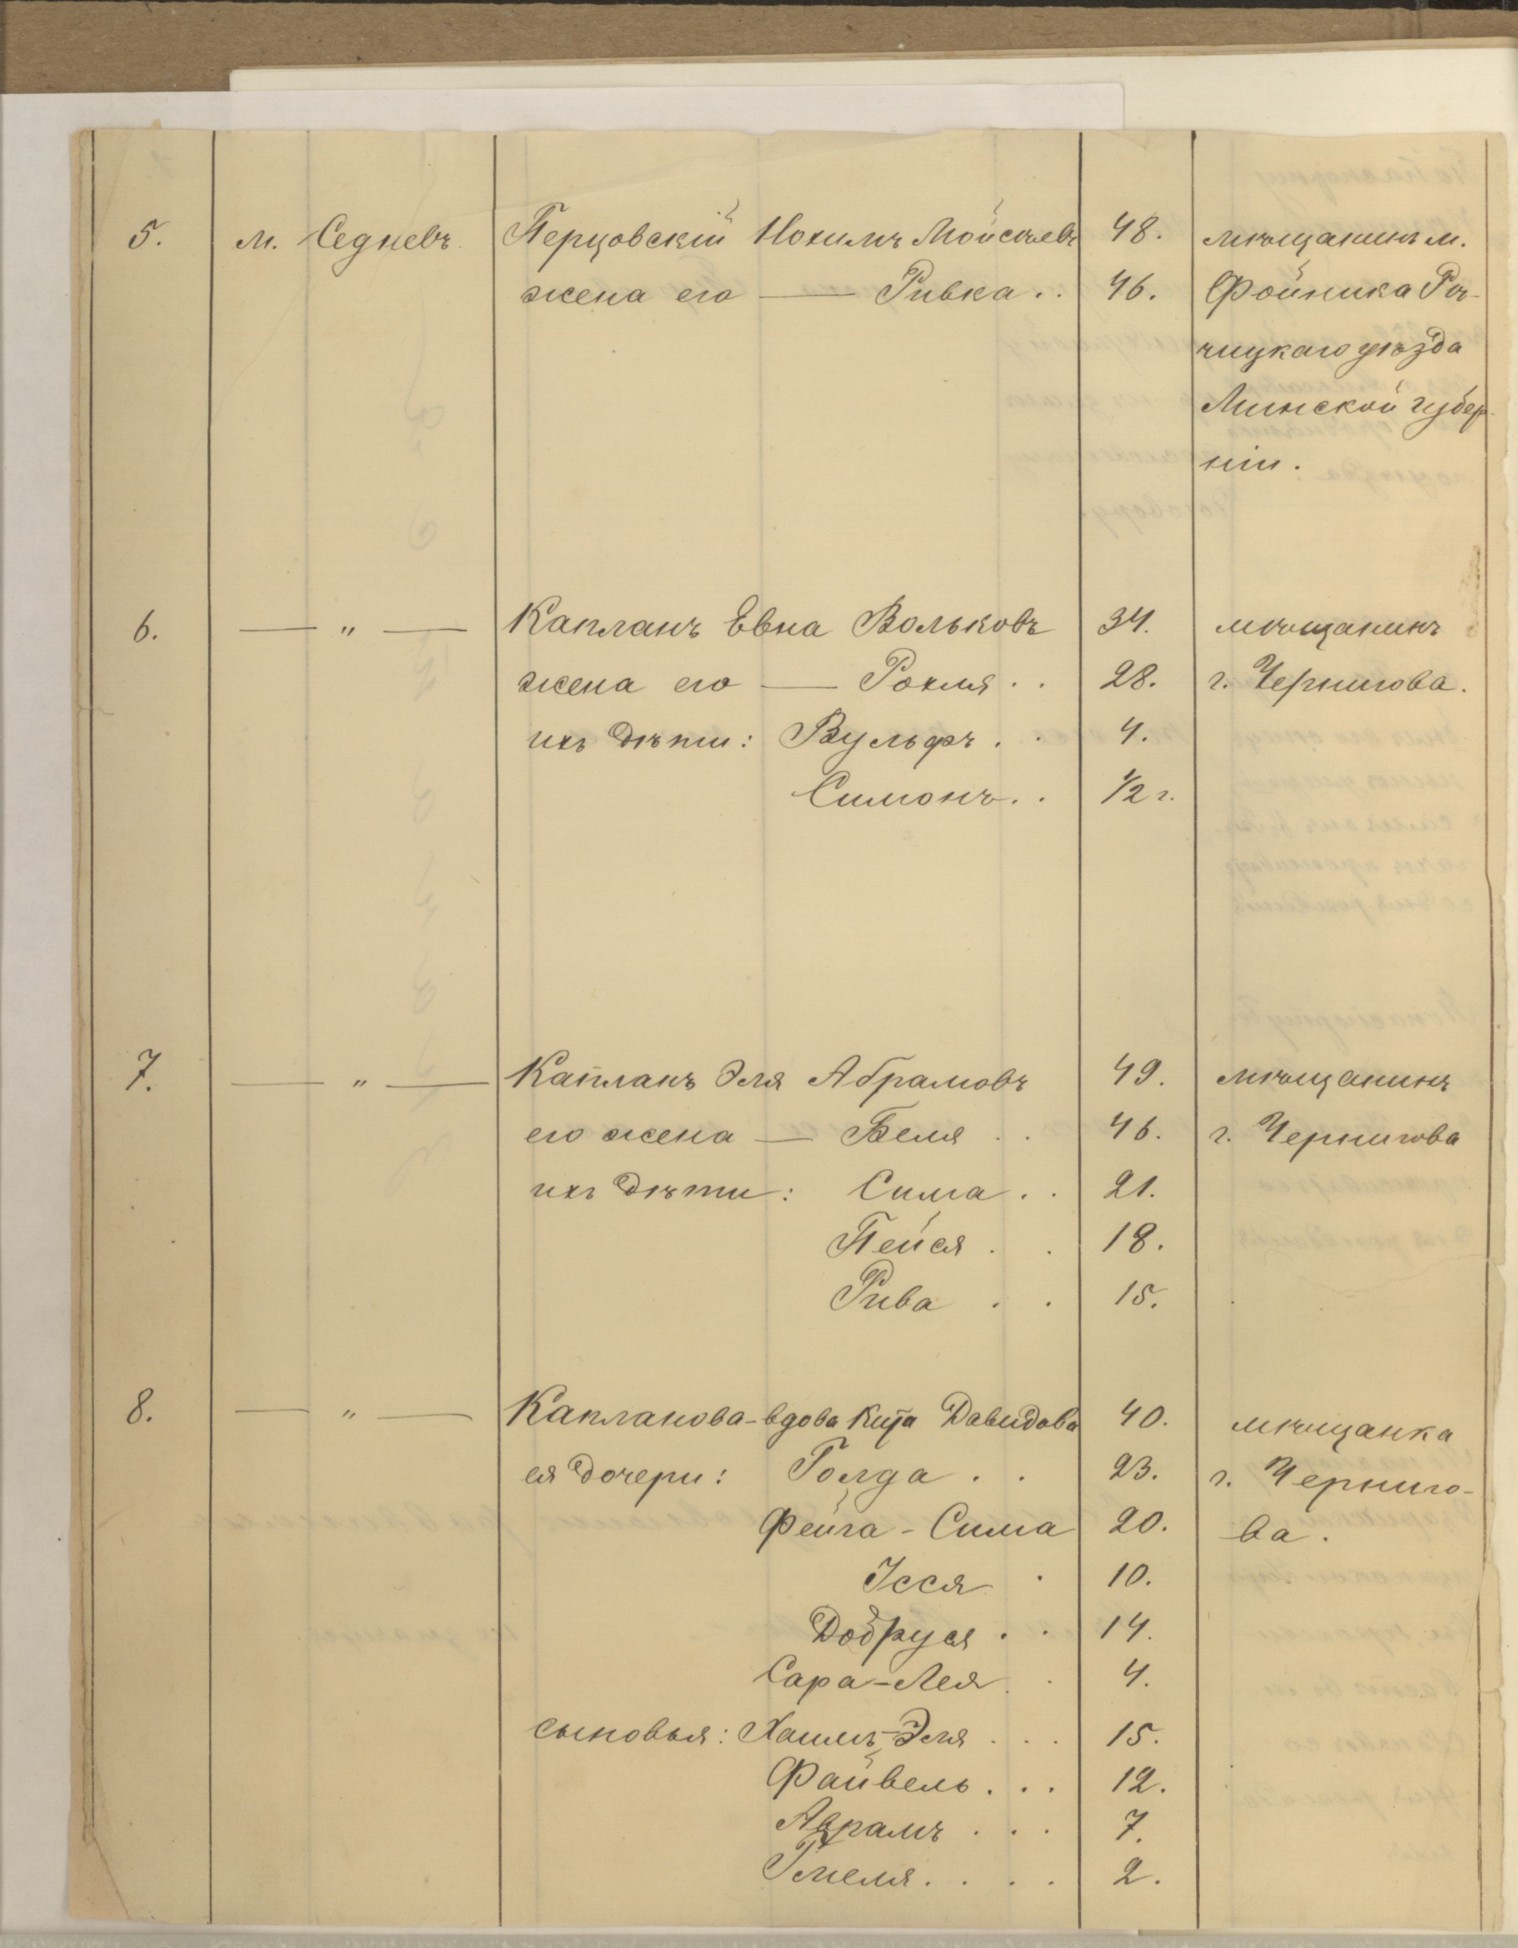 5. м. Седневъ Перцовскій Нохимъ Мойсѣевъ 48. мѣщанинъ м.
жена его — Ривка . . 46. Фойника Рѣ-
чицкаго уѣзда
Минской губер-
ніи.
6. — " — Капланъ Евна Вольковъ 34. мѣщанинъ
жена его — Рохля . . 28. г. Чернигова.
ихъ дѣти: Вульфъ . . 4.
Симонъ . . 1/2 г.
7. — " — Капланъ Эля Абрамовъ 49. мѣщанинъ
его жена — Беля . . 46. г. Чернигова
ихъ дѣти: Сима . . 21.
Пейся . . 18.
Рива . . 15.
8. — " — Капланова-вдова Давидова 40. мѣщанка
ея дочери: Голда . . 23. г. Черниго-
Фейга - Сима 20. ва.
Ісся . 10.
Добруся . . 14.
Сара-Лея . . 4.
сыновья: Хаимъ-Эля . . . 15.
Файвель . . . 12.
Аврамъ . . . 7.
. . . . 2.